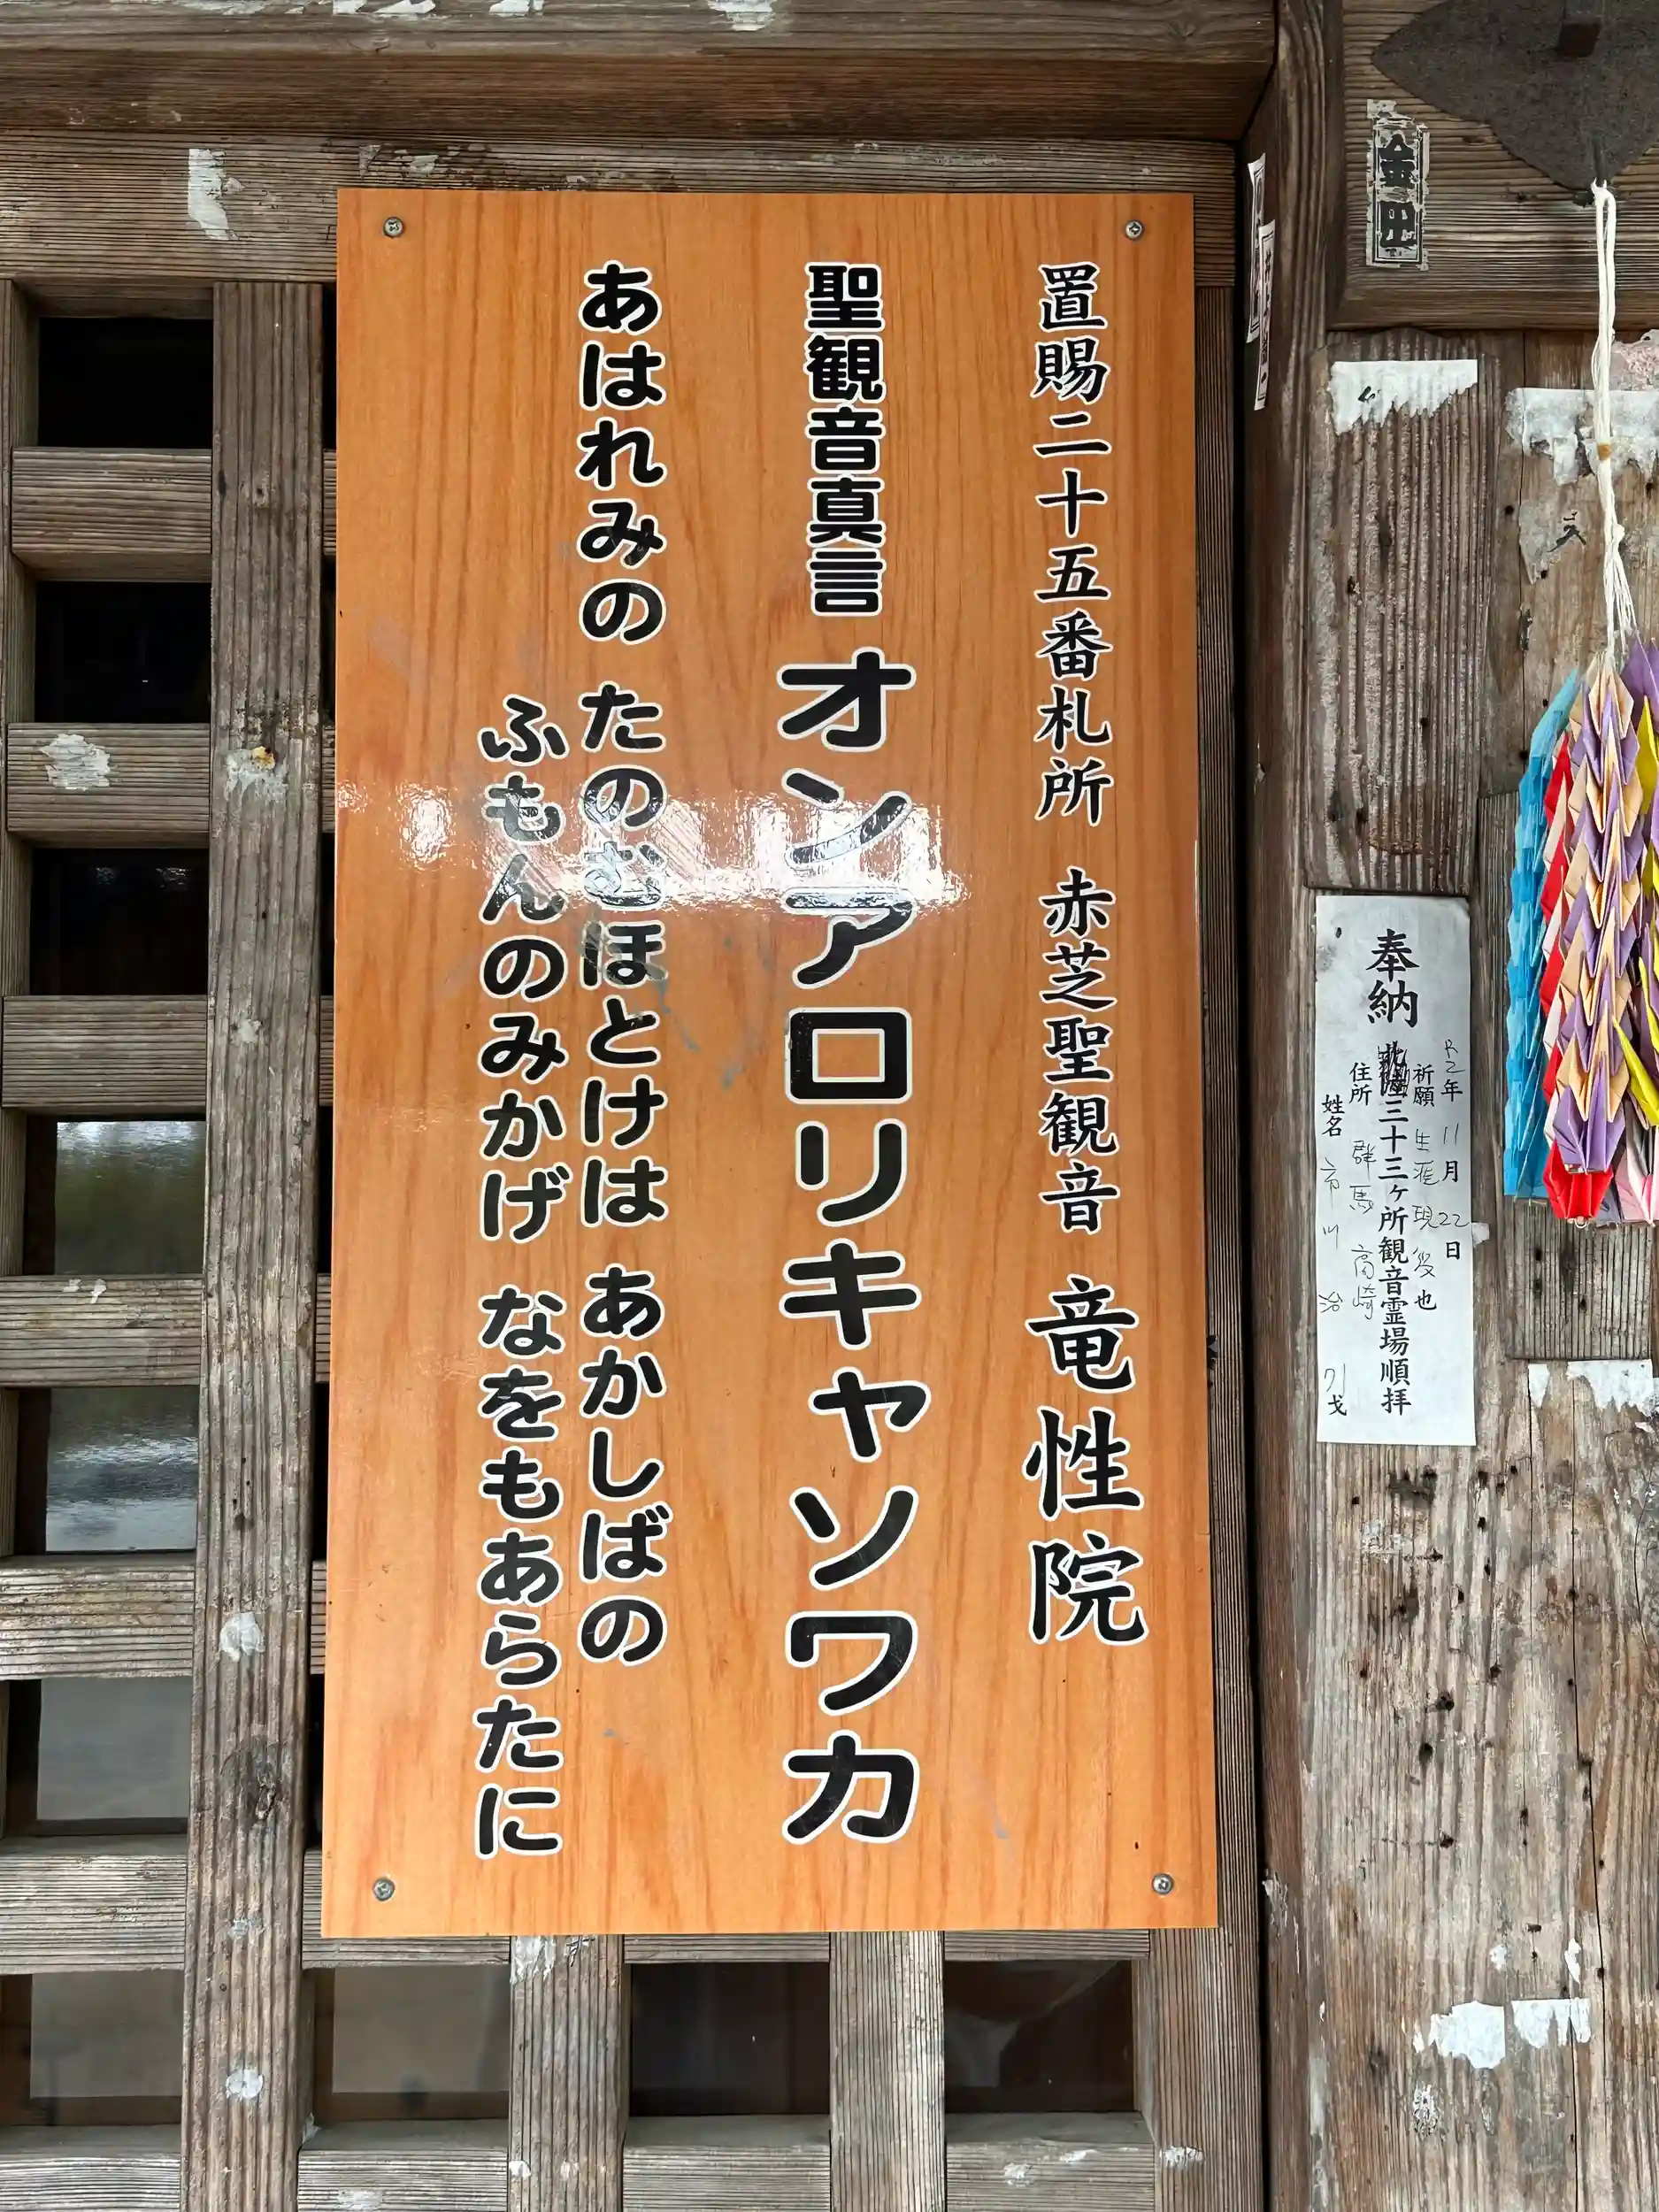 置賜二十五番札所 赤芝聖観音 竜性院
聖観音真言 オンアロリキャソワカ
あはれみの たのむほとけは あかしばの
ふもんのみかげ なをもあらたに
金田
奉納
三十三ヶ所観音霊場順拝
R2年 11月 22日
祈願 生涯現役也
住所 群馬 高崎
姓名 市川